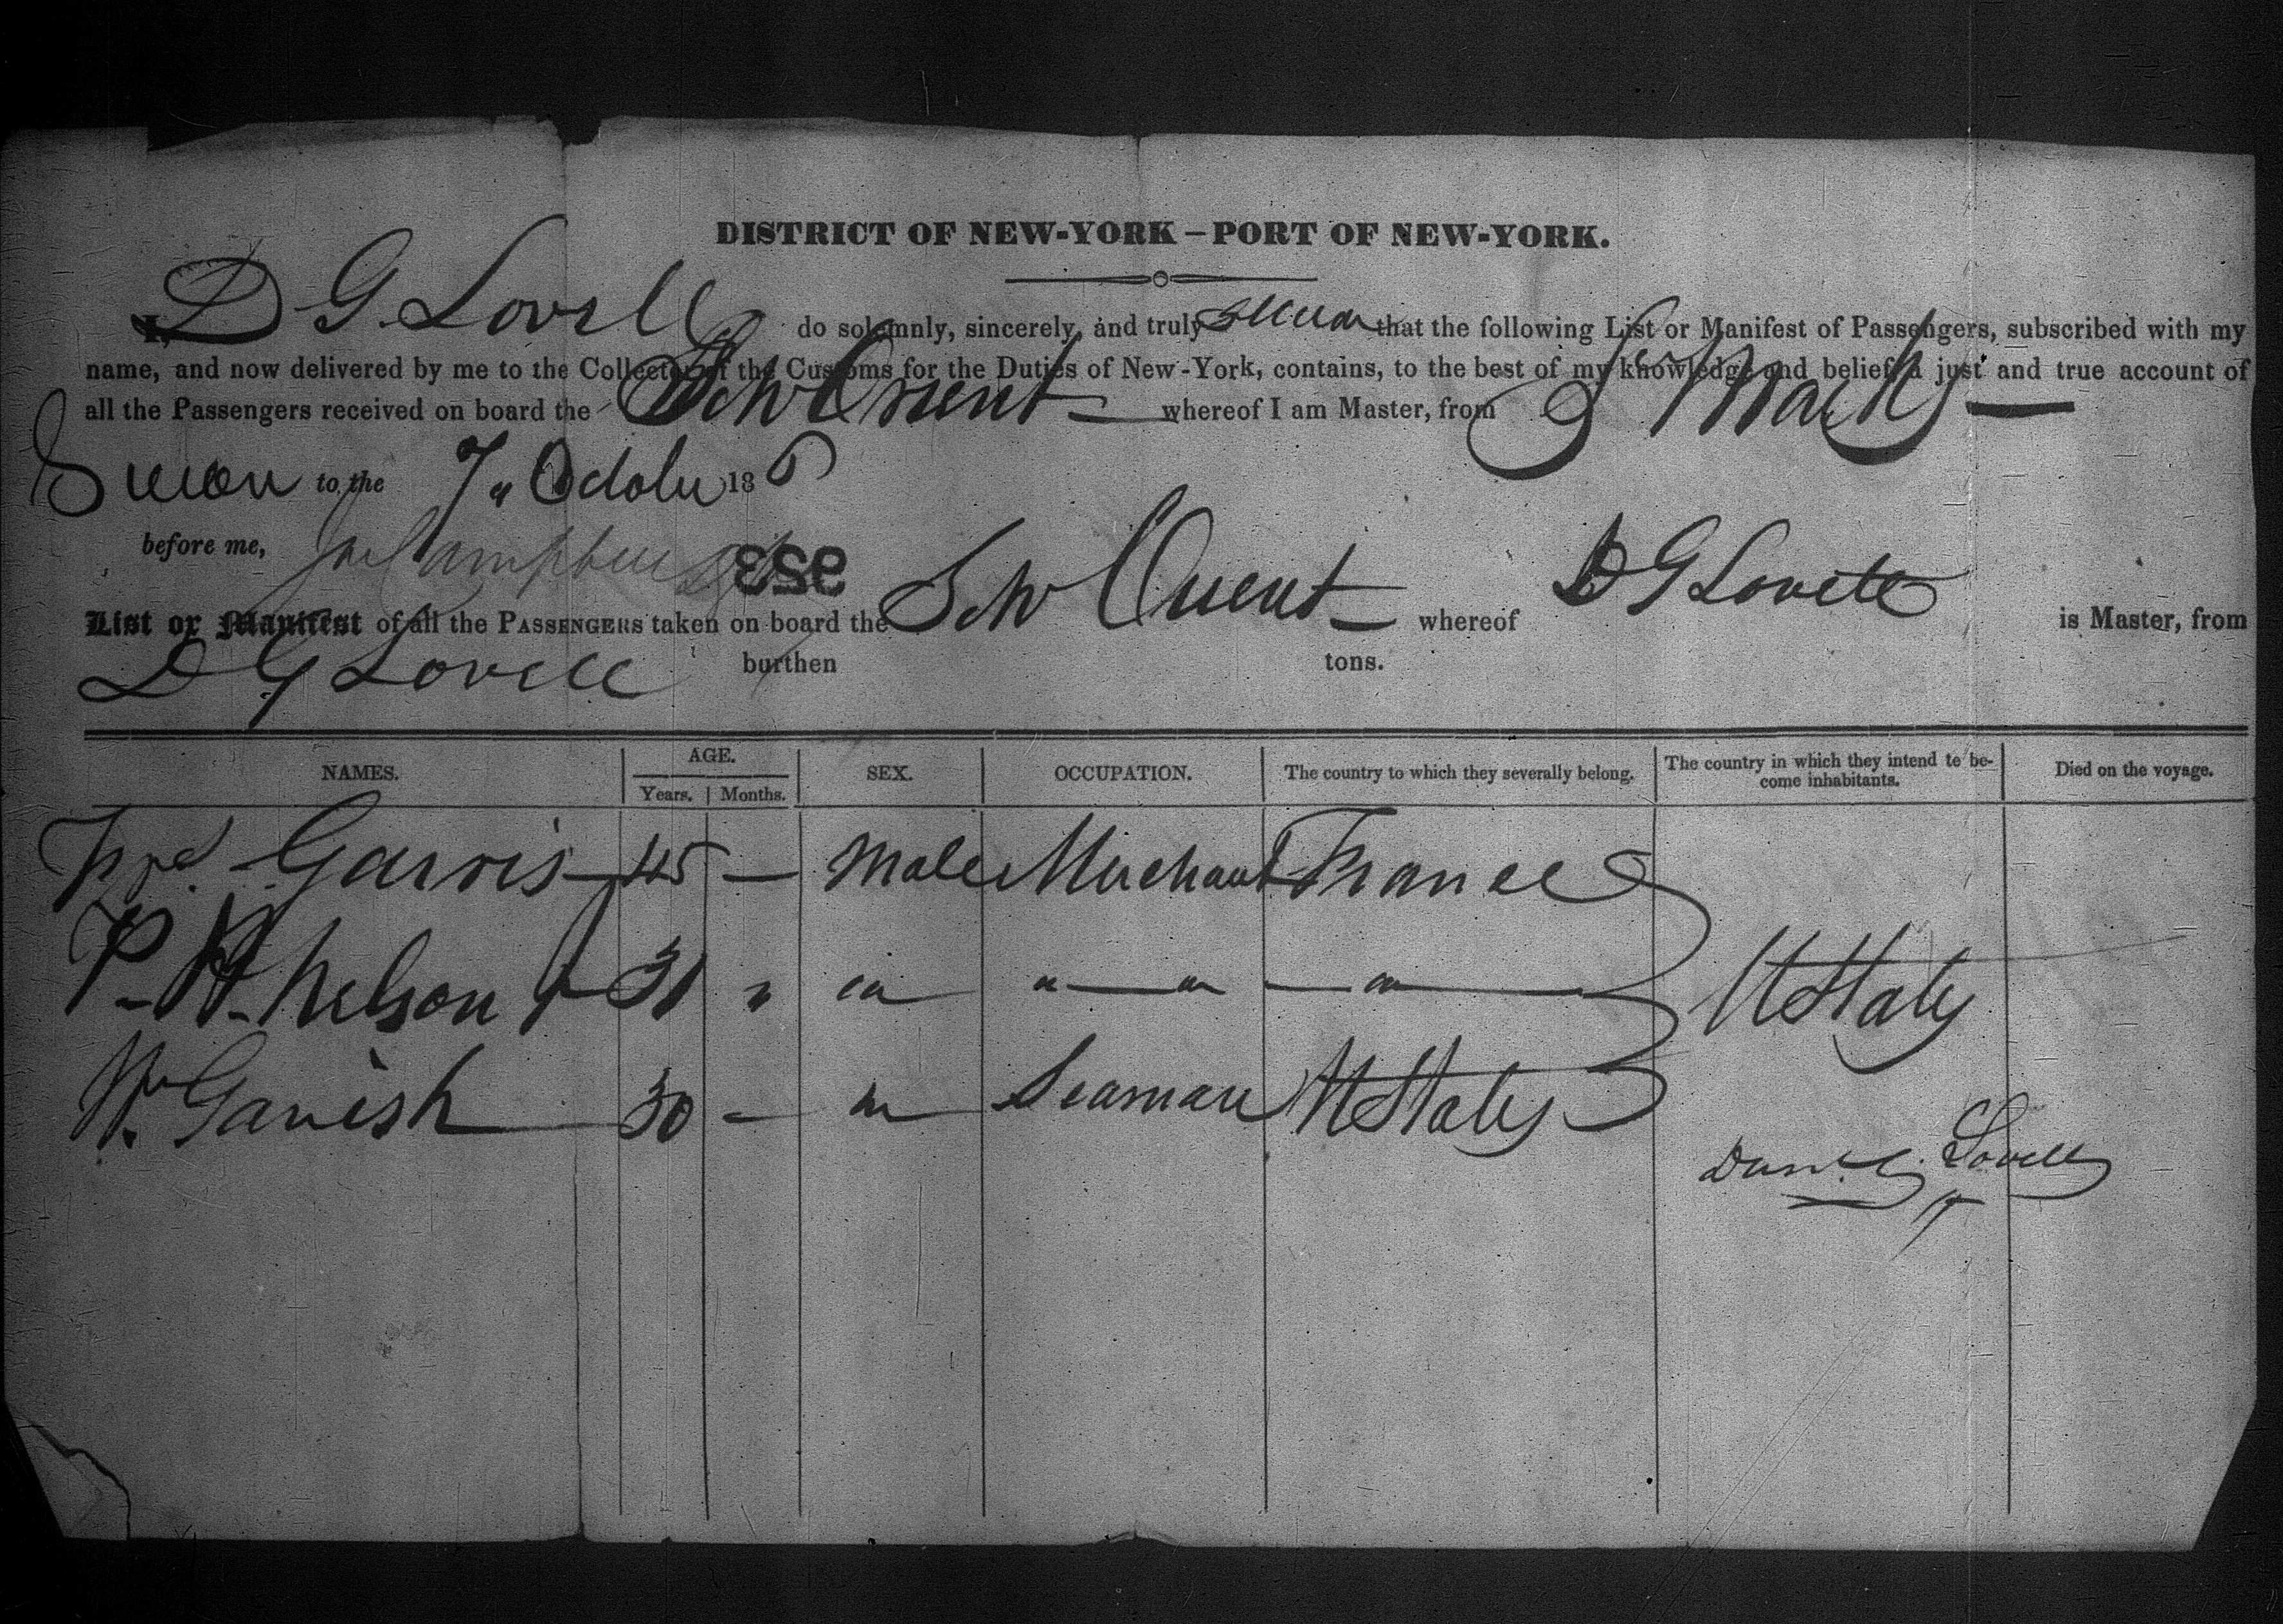 DISTRICT OF NEW-YORK – PORT OF NEW-YORK.
I, D G. Lovell do solemnly, sincerely, and truly swear that the following List or Manifest of Passengers, subscribed with my
name, and now delivered by me to the Collector of the Customs for the Duties of New-York, contains, to the best of my knowledge and belief, a just and true account of
all the Passengers received on board the Schr Orient whereof I am Master, from St Marks
Sworn to the 7" October 18
before me, Campbell 953
List or Manifest of all the PASSENGERS taken on board the Schr Orient whereof D G Lovell is Master, from
D G Lovell burthen tons.
NAMES. AGE. SEX. OCCUPATION. The country to which they severally belong. The country in which they intend to be-come inhabitants. Died on the voyage.
Years. Months.
Garvis 45 — Male Merchant France
P. H. Nelson 31 " " " "
Wm Gavish 30 — " Seaman U States
U States
Danl G. Lovell